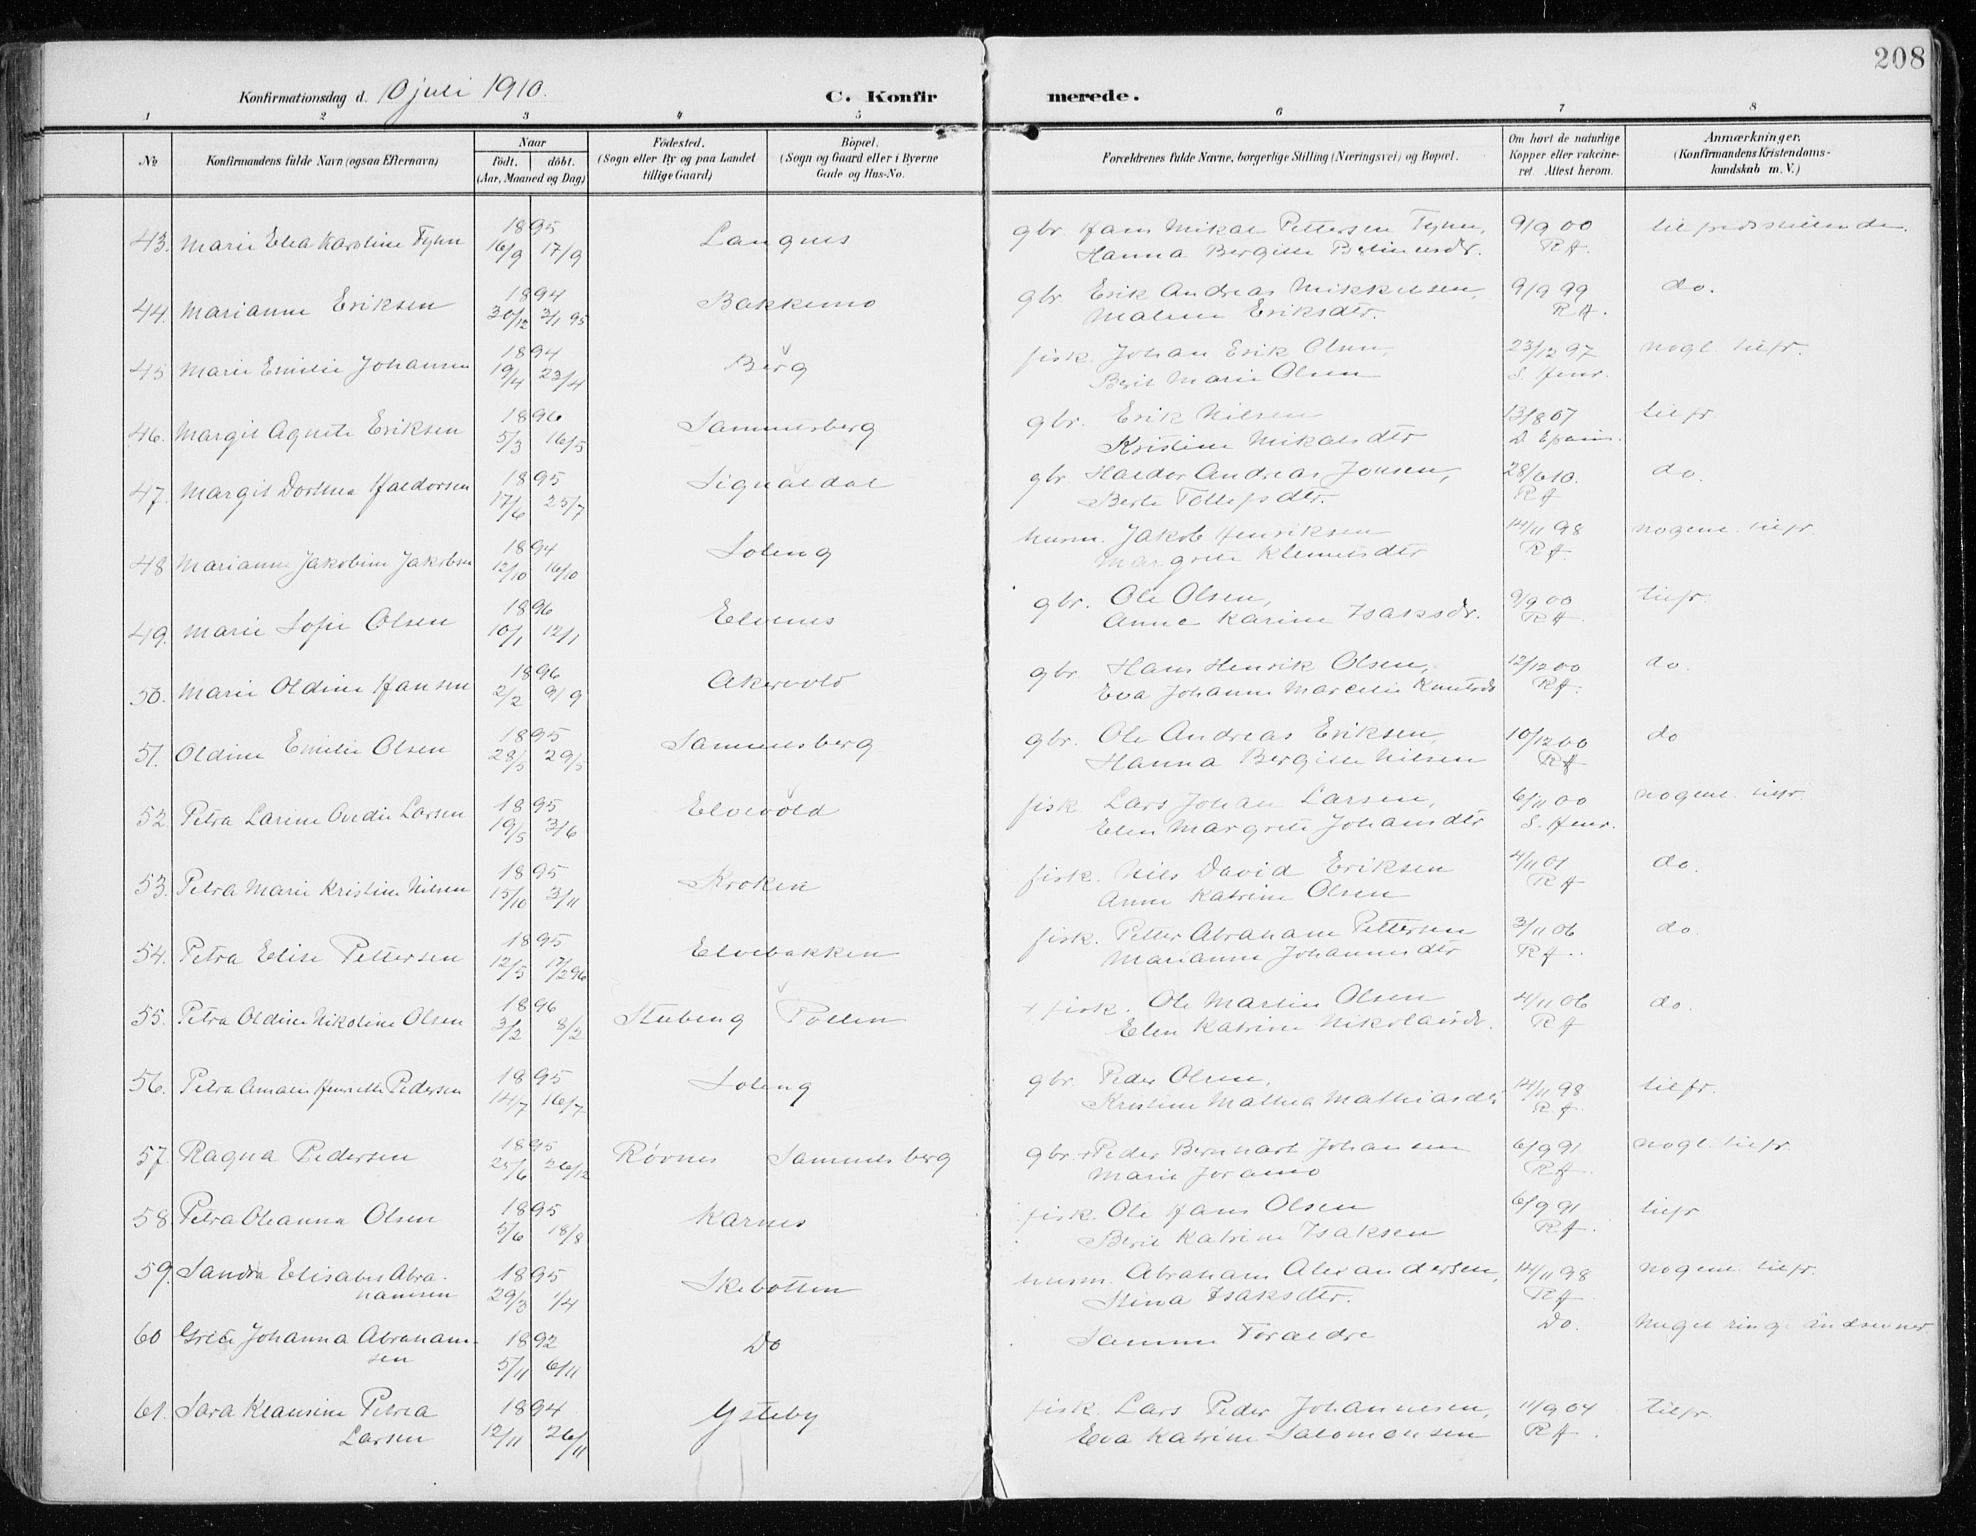 208
Konfirmationsdag d. 10 juli 1910.
C. Konfirmerede.
1 2 3 4 5 6 7 8
№
Konfirmandens fulde Navn (ogsaa Efternavn)
Naar
Født. døbt.
(Aar, Maaned og Dag)
Fødested.
(Sogn eller By og paa Landet
tillige Gaard)
Bopæl.
(Sogn og Gaard eller i Byerne
Gade og Hus-No.
Forældrenes fulde Navne, borgerlige Stilling (Næringsvei) og Bopæl.
Om havt de naturlige
Kopper eller vakcine-
ret. Attest herom.
Anmærkninger.
(Konfirmandens Kristendoms-
kundskab m. V.)
43. Marie Elea Karoline Fyhn 1895 16/9 17/9 Langnes gbr. Hans Mikal Pettersen Fyhn, 9/9 00 tilfredsstillende.
Hanna Bergitte R.A.
44. Marianne Eriksen 1894 30/12 3/1 95 Bakkemo gbr. Erik Andreas Mikkelsen, 9/9 99 do.
Malene Eriksdtr. R.A.
45 Marie Emilie Johansen 1894 19/4 23/4 Berg fisk. Johan Erik Olsen, 23/12 97 nogl. tilfr.
Berit Marie Olsen S. Henr.
46. Margit Agnete Eriksen 1896 5/3 16/5 Sammuelsberg gbr. Erik Nilsen 13/8 07 tilfr
Kristine Mikalsdtr
47. Margit Dorthea Haldorsen 1895 17/6 25/7 Signaldal gbr Haldor Andreas Jonsen, 28/6 10. do.
Berte Tollefsdtr. R A
48 Marianne Jakobine Jakobsen 1894 12/10 16/10 Soleng husm. Jakob Henriksen 14/11 98 nogenl. tilfr.
Margrete Klemetsdtr R A.
49. Marie Sofie Olsen 1896 10/1 12/1 Elvenes gbr. Ole Olsen, 9/9 00 tilfr.
Anne Karine Isaksdr. R A.
50. Marie Oldine Hansen 1896 2/2 9/9 Akervold gbr Hans Henrik Olsen, 12/12 00 do.
Eva Johanne Marcelie Knutsdr R A.
51. Oldine Emilie Olsen 1895 28/5 29/5 Sammuelsberg gbr. Ole Andreas Eriksen, 10/12 00 do
Hanna Bergitte Nilsen R A
52. Petra Larine Ovedie Larsen 1895 19/5 3/6 Elvevold fisk Lars Johan Larsen, 6/11 00 nogenl. tilfr.
Elen Margrete Johansdtr S. Henr.
53. Petra Marie Kristine Nilsen 1895 15/10 3/11 Kroken fisk. Nils David Eriksen 4/11 01 do.
Anne Katrine Olsen R A
54. Petra Elise Pettersen 1895 12/5 17/2 96 Elvebakken fisk. Petter Abraham Pettersen 3/11 06 do.
Marianne Johannesdtr R A.
55. Petra Oldine Nikoline Olsen 1896 3/2 8/2 Stubeng Pollen + fisk. Ole Martin Olsen 4/11 06 do.
Elen Katrine Nikolaisdr. R A
56. Petra Amalie Henriette Pedersen 1895 14/7 16/7 Soleng gbr. Peder Olsen, 14/11 98 tilfr.
Kristine Mathea Mathiasdtr R A.
57. Ragna Pedersen 1895 25/6 26/12 Røvnes Sammuelsberg gbr. + Peder Bernhart Johansen 6/9 91 nogl. tilfr.
Marie Joramo R A.
58 Petra Oleanna Olsen 1895 5/6 18/8 Karnes fisk. Ole Hans Olsen 6/9 91 tilfr
Berit Katrine Isaksen R A.
59. Sandra Elisabet Abra- 1895 29/3 1/4 Skibotten husm. Abraham Alexandersen, 14/11 98 nogenl. tilfr.
hamsen Stina Isaksdtr. R A.
60 Grete Johanna Abraham- 1892 5/11 6/11 Do Samme Foraldre Do. Meget ring. åndsevner.
sen
61. Sara Klausine Petrea 1894 12/11 26/11 Ysteby fisk. Lars Peder Johannesen, 11/9 04 tilfr.
Larsen Eva Katrine Salomonsen R A.